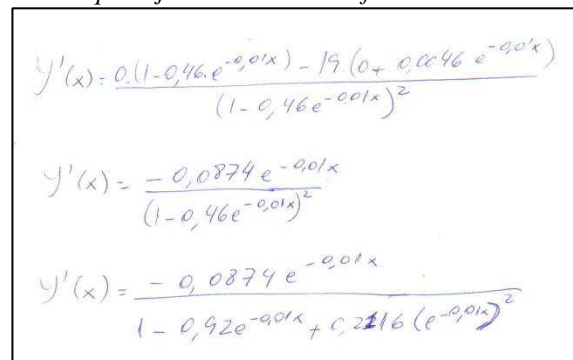 y'(x) = 0.(1-0,46.e^{-0,01x}) - 19.(0 + 0,0046 e^{-0,01x})
(1-0,46e^{-0,01x})^2
y'(x) = -0,0874 e^{-0,01x}
(1-0,46e^{-0,01x})^2
y'(x) = -0,0874 e^{-0,01x}
1-0,92e^{-0,01x} + 0,2116 (e^{-0,01x})^2